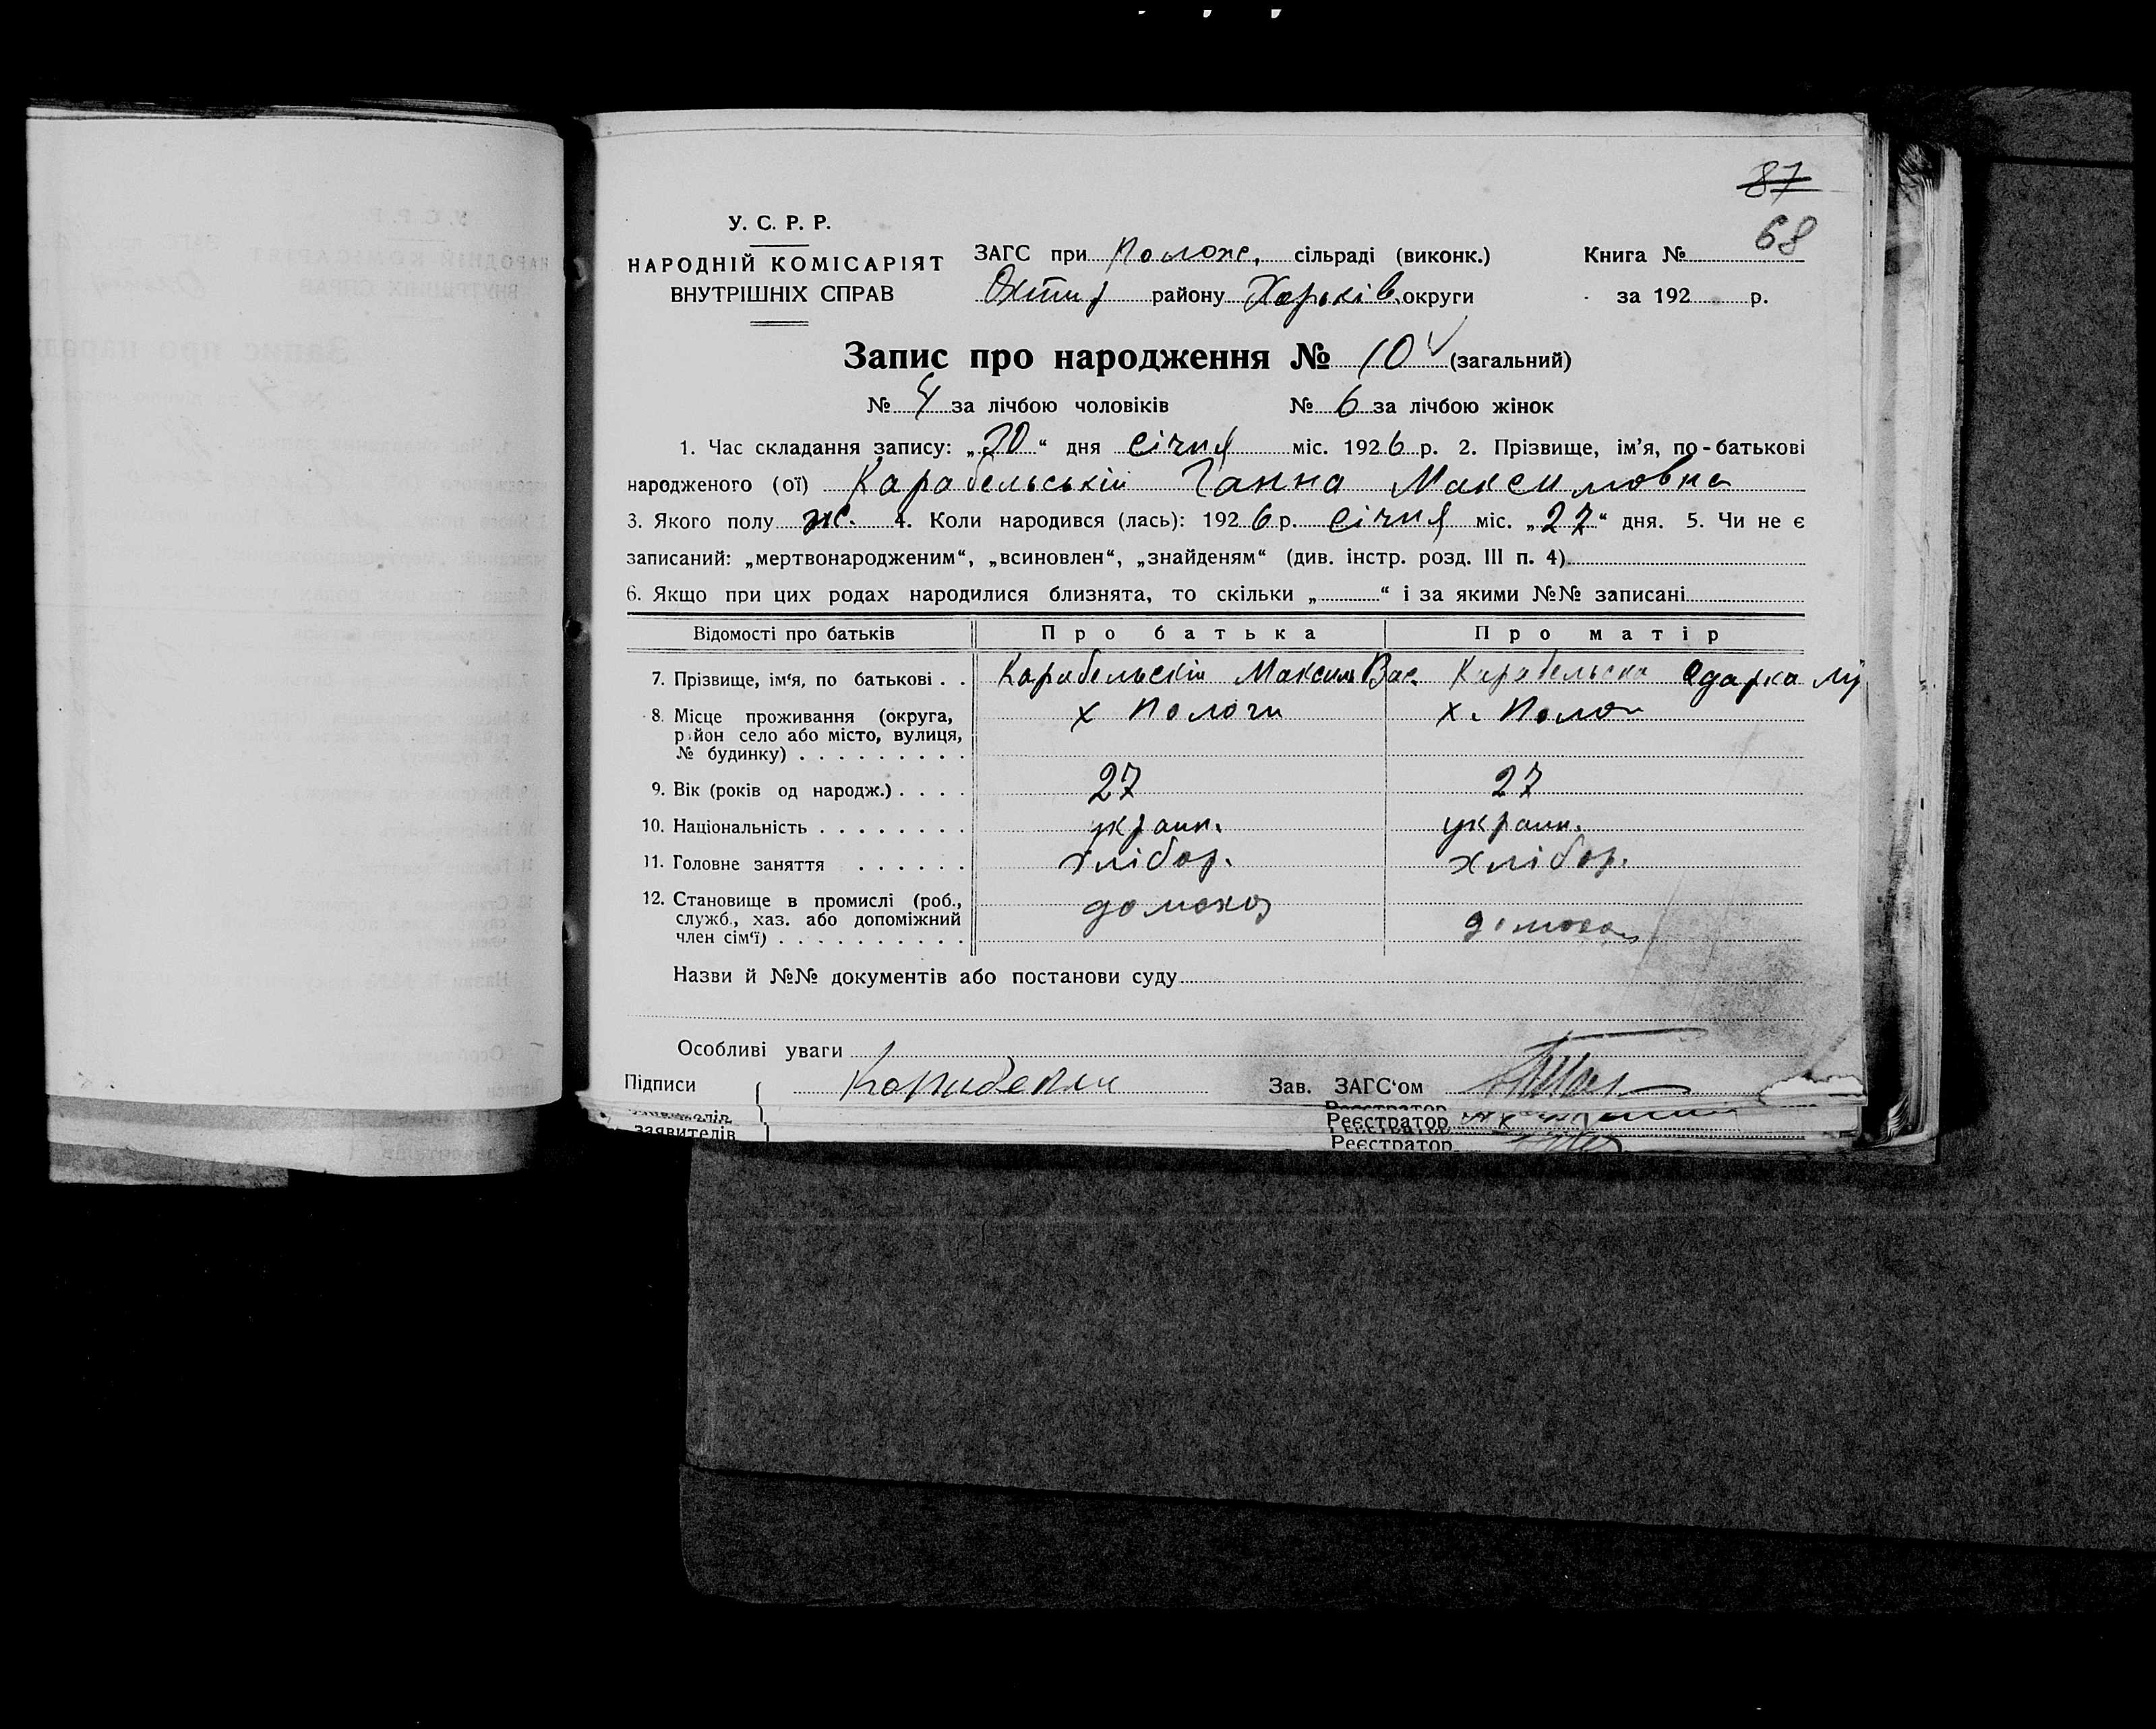 87
68
У. С. Р. Р.
НАРОДНІЙ КОМІСАРІЯТ
ВНУТРІШНІХ СПРАВ
ЗАГС при Положс, сільраді (виконк.)
Охтир району Харьків. округи
Книга №
за 192 р.
Запис про народження № 10 (загальний)
№ 4 за лічбою чоловіків № 6 за лічбою жінок
1. Час складання запису: „30“ дня січня міс. 1926 р. 2. Прізвище, ім’я, по-батькові
народженого (ої) Карабельській Ганна Максимовна
3. Якого полу ж. 4. Коли народився (лась): 1926 р. січня міс. „27“ дня. 5. Чи не є
записаний: „мертвонародженим“, „всиновлен“, „знайденям“ (див. інстр. розд. III п. 4)
6. Якщо при цих родах народилися близнята, то скільки „ “ і за якими №№ записані
Відомості про батьків Про батька Про матір
7. Прізвище, ім‘я, по батькові . . Карабельскій Максим Вас Карабельска Одарка
8. Місце проживання (округа, район село або місто, вулиця, № будинку) х Пологи х. Полог
9. Вік (років од народж.) . . . . 27 27
10. Національність . . . . . . . . украин. украин.
11. Головне заняття . . . . . . хлібор. хлібор.
12. Становище в промислі (роб., служб., хаз. або допоміжний член сім‘ї) . . . . . . . . . . домохоз домохоз
Назви й №№ документів або постанови суду
Особливі уваги
Підписи Зав. ЗАГС‘ом
Реєстратор
заявителів
Реєстратор